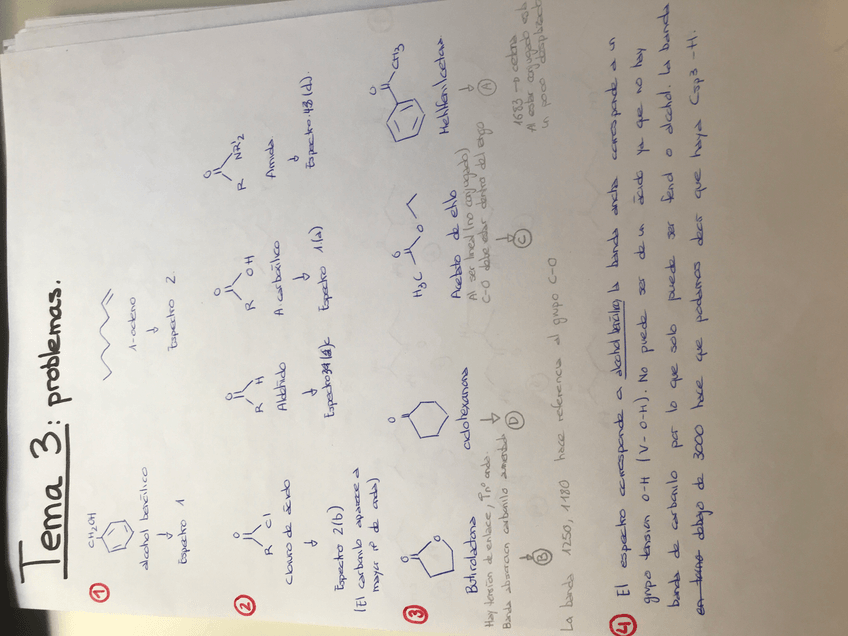 Tema 3: problemas.
① CH2OH
alcohol bencílico
↓
Espectro 1
1-octeno
↓
Espectro 2.
② O
R Cl
Cloruro de ácido
↓
Espectro 2(b)
(El carbonilo aparece a
mayor nº de onda)
O
R H
Aldehído
↓
O
R OH
A. carboxílico
↓
Espectro 1(a)
O
R NR'2
Amida
↓
Espectro 4(d).
③ O
O
Butirolactona
Hay tensión de enlace, ↑nº onda.
Banda absorción carbonilo aumentada
↓
B
O
ciclohexanona
↓
D
H3C O
O
Acetato de etilo
Al ser lineal (no conjugado)
C-O debe estar dentro del rango
↓
C
O
CH3
Metilfenilcetona
↓
A
1683 → cetona
Al estar conjugado está
un poco desplazado
La banda 1250, 1180 hace referencia al grupo C-O
④ El espectro corresponde a alcohol bencílico, la banda ancha corresponde a un
grupo tensión O-H (V-O-H). No puede ser de un ácido ya que no hay
banda de carbonilo por lo que solo puede ser fenol o alcohol. La banda
debajo de 3000 hace que podamos decir que haya Csp3-H.